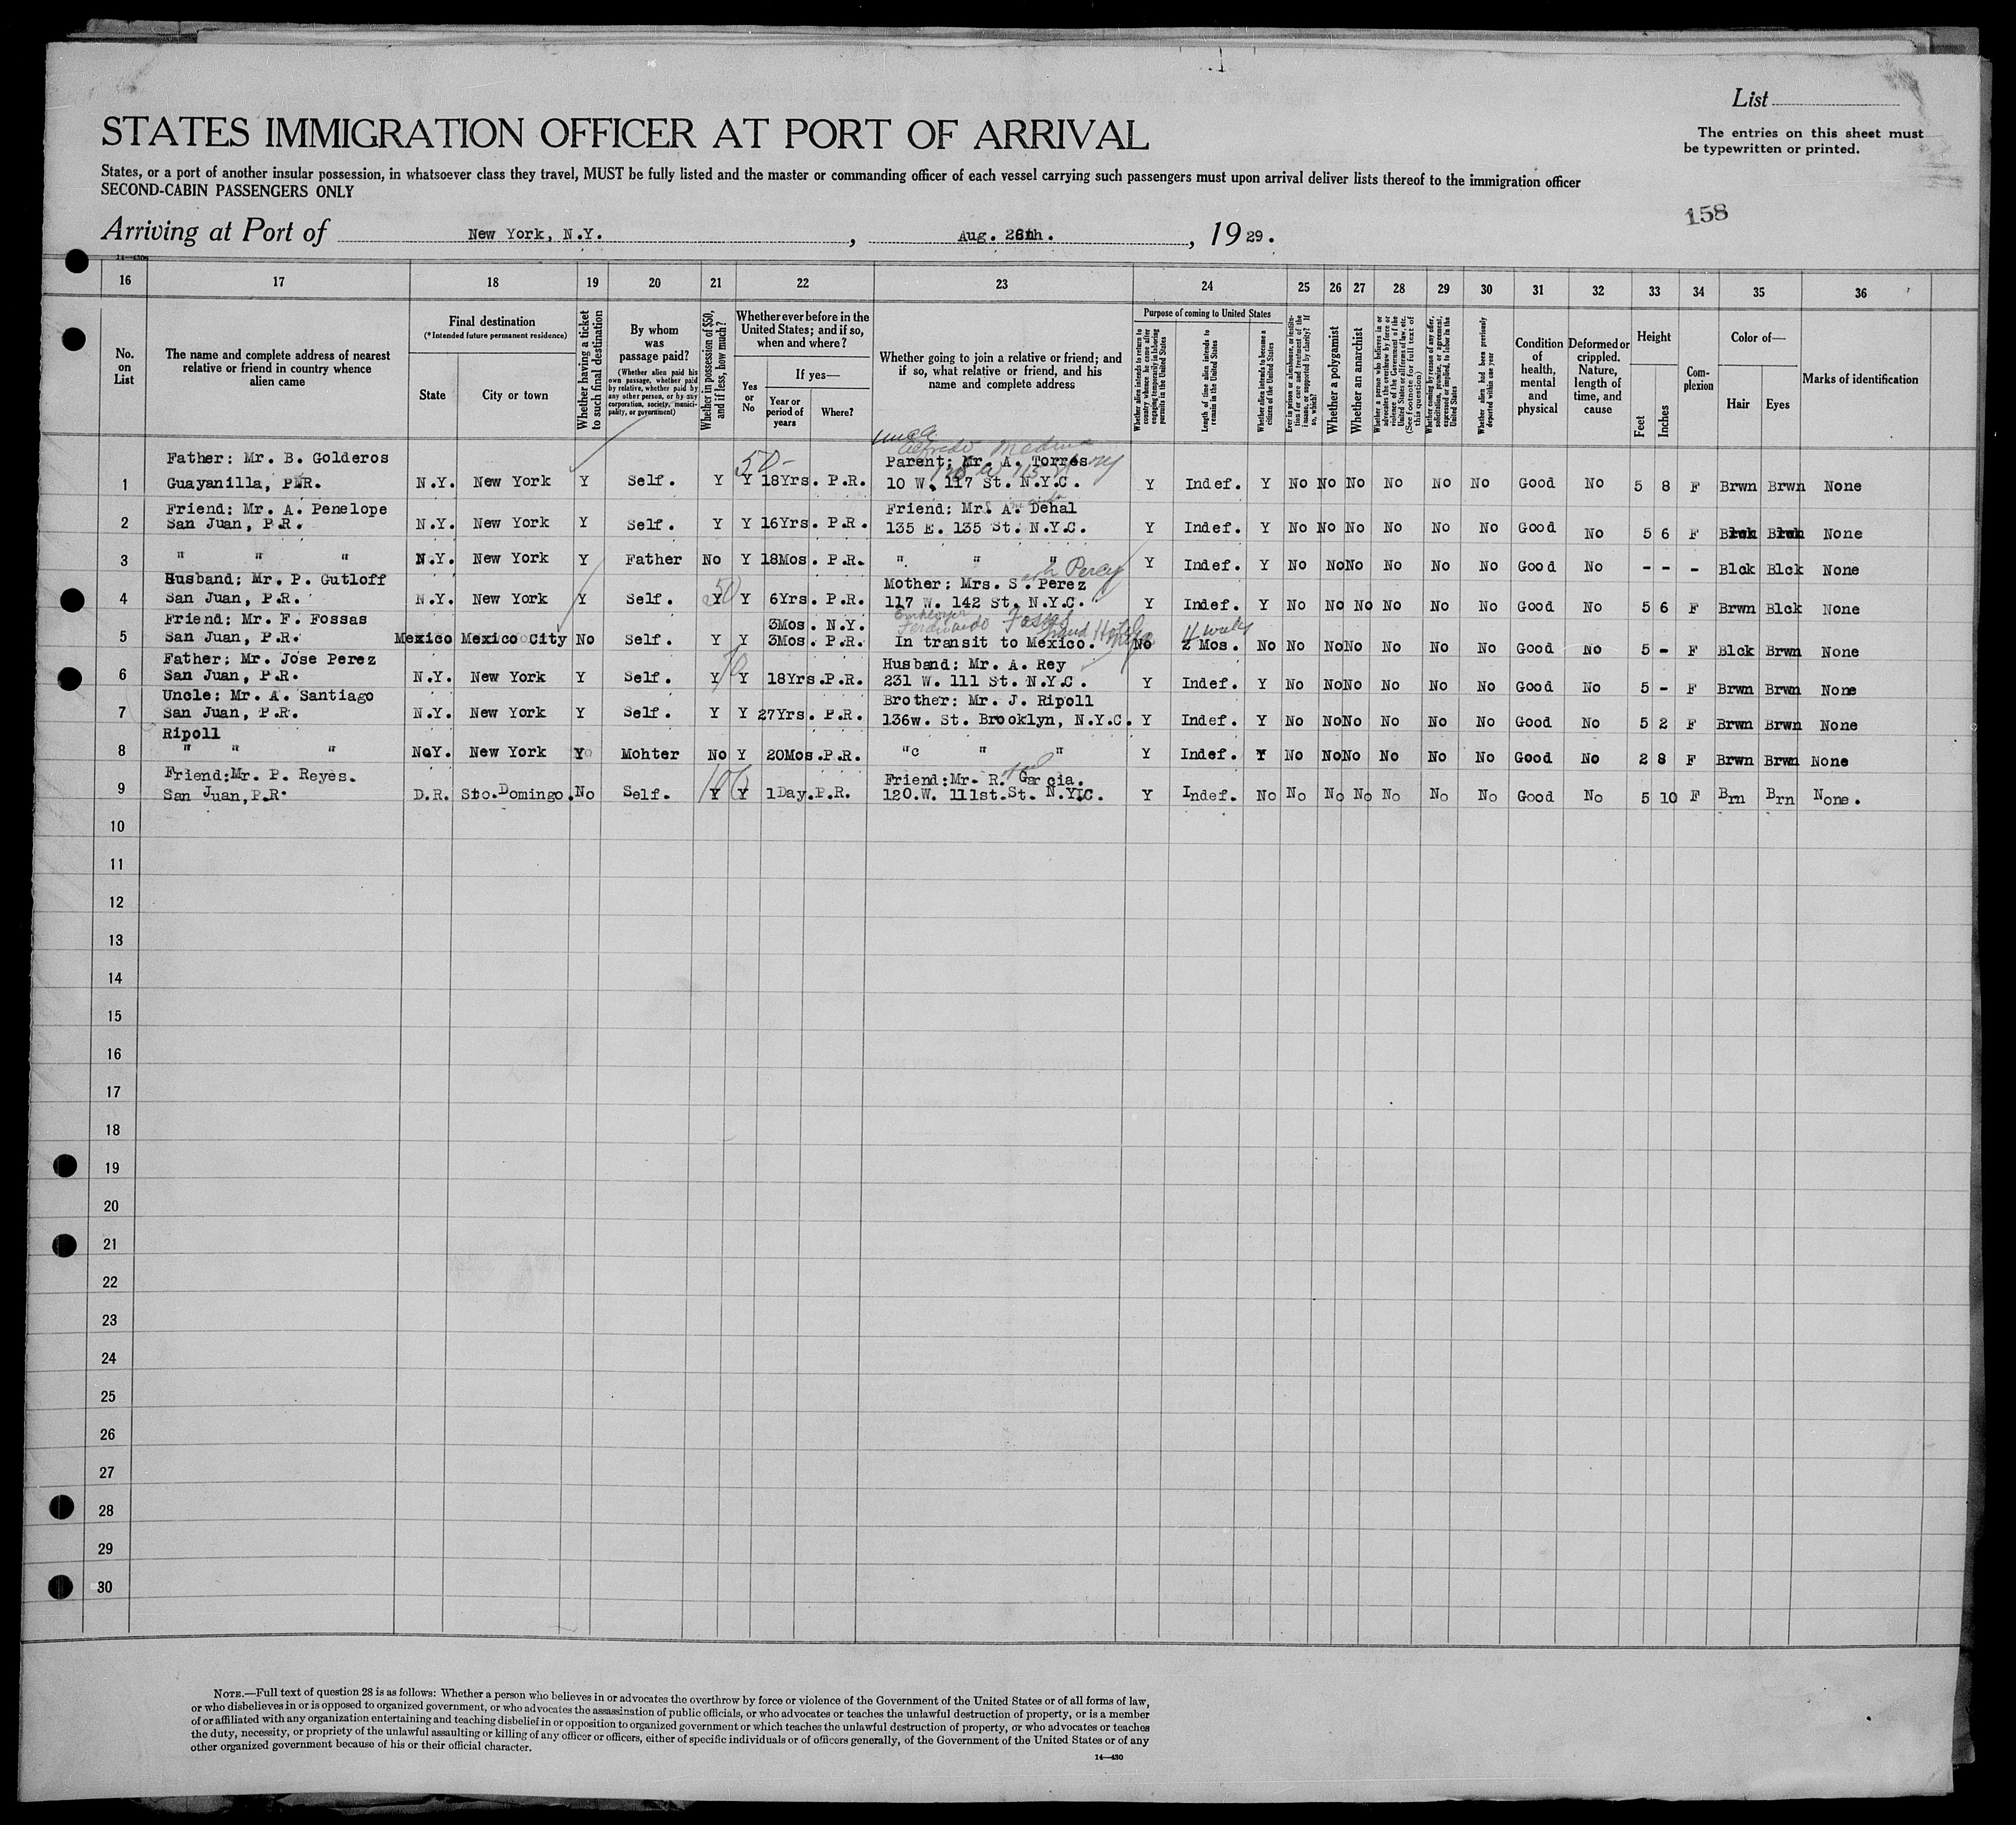 List
STATES IMMIGRATION OFFICER AT PORT OF ARRIVAL
The entries on this sheet must
be typewritten or printed.
States, or a port of another insular possession, in whatsoever class they travel, MUST be fully listed and the master or commanding officer of each vessel carrying such passengers must upon arrival deliver lists thereof to the immigration officer
SECOND-CABIN PASSENGERS ONLY
158
Arriving at Port of New York, N.Y. , Aug. , 1929.
16 17 18 19 20 21 22 23 24 25 26 27 28 29 30 31 32 33 34 35 36
No. on List
The name and complete address of nearest relative or friend in country whence alien came
Final destination
(*Intended future permanent residence)
State
City or town
Whether having a ticket to such final destination
By whom was passage paid?
(Whether alien paid his own passage, whether paid by relative, whether paid by any other person, or by any corporation, society, municipality, or government)
Whether in possession of $50, and if less, how much?
Whether ever before in the United States; and if so, when and where?
Yes or No
If yes—
Year or period of years
Where?
Whether going to join a relative or friend; and if so, what relative or friend, and his name and complete address
Purpose of coming to United States
Whether alien intends to return to country whence he came after engaging temporarily in laboring pursuits in the United States
Length of time alien intends to remain in the United States
Whether alien intends to become a citizen of the United States
Ever in prison or almshouse, or institution for care and treatment of the insane, or supported by charity? If so, which?
Whether a polygamist
Whether an anarchist
Whether a person who believes in or advocates the overthrow by force or violence of the Government of the United States or all forms of law, etc. (See footnote for full text of this question)
Whether coming by reason of any offer, solicitation, promise, or agreement, expressed or implied, to labor in the United States
Whether alien had been previously deported within one year
Condition of health, mental and physical
Deformed or crippled. Nature, length of time, and cause
Height
Feet
Inches
Complexion
Color of—
Hair
Eyes
Marks of identification
uncle
Alfredo Medina
Father: Mr. B. Golderos 50- Parent; Mr. A. Torres
1 Guayanilla, P.R. N.Y. New York Y Self. Y Y 18Yrs. P.R. 10 W. 117 St. N.Y.C. Y Indef. Y No No No No No No Good No 5 8 F Brwn Brwn None
Friend: Mr. A. Penelope Friend: Mr. A. Dehal
2 San Juan, P.R. N.Y. New York Y Self. Y Y 16Yrs. P.R. 135 E. 135 St. N.Y.C. Y Indef. Y No No No No No No Good No 5 6 F None
3 " " " N.Y. New York Y Father No Y 18Mos. P.R. " " " Y Indef. Y No No No No No No Good No - - - Blck Blck None
Husband: Mr. P. Gutloff Mother: Mrs. S. Perez
4 San Juan, P.R. N.Y. New York Y Self. 50 Y Y 6Yrs. P.R. 117 W. 142 St. N.Y.C. Y Indef. Y No No No No No No Good No 5 6 F Brwn Blck None
Friend: Mr. F. Fossas 3Mos. N.Y. Employer Ferdinando Fossas Grand Hotel 4 weeks
5 San Juan, P.R. Mexico Mexico City No Self. Y Y 3Mos. P.R. In transit to Mexico. No 2 Mos. No No No No No No No Good No 5 - F Blck Brwn None
Father: Mr. Jose Perez Husband: Mr. A. Rey
6 San Juan, P.R. N.Y. New York Y Self. Y Y 18Yrs.P.R. 231 W. 111 St. N.Y.C. Y Indef. Y No No No No No No Good No 5 - F Brwn Brwn None
Uncle: Mr. A. Santiago Brother: Mr. J. Ripoll
7 San Juan, P.R. N.Y. New York Y Self. Y Y 27Yrs. P.R. 136w. St. Brooklyn, N.Y.C. Y Indef. Y No No No No No No Good No 5 2 F Brwn Brwn None
Ripoll
8 " " " N.Y. New York Y Mohter No Y 20Mos.P.R. " " " Y Indef. Y No No No No No No Good No 2 8 F Brwn Brwn None
Friend:Mr. P. Reyes. 100 Friend:Mr. R. Garcia.
9 San Juan,P.R. D.R. Sto.Domingo. No Self. Y Y 1Day.P.R. 120.W. 111st.St. N.Y.C. Y Indef. No No No No No No No Good No 5 10 F Brn Brn None.
10
11
12
13
14
15
16
17
18
19
20
21
22
23
24
25
26
27
28
29
30
NOTE.—Full text of question 28 is as follows: Whether a person who believes in or advocates the overthrow by force or violence of the Government of the United States or of all forms of law,
or who disbelieves in or is opposed to organized government, or who advocates the assassination of public officials, or who advocates or teaches the unlawful destruction of property, or is a member
of or affiliated with any organization entertaining and teaching disbelief in or opposition to organized government or which teaches the unlawful destruction of property, or who advocates or teaches
the duty, necessity, or propriety of the unlawful assaulting or killing of any officer or officers, either of specific individuals or of officers generally, of the Government of the United States or of any
other organized government because of his or their official character.
14—430